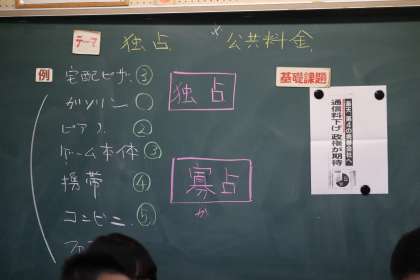 テーマ 独占 × 公共料金
例 宅配ピザ ③
ガソリン ○
ピアノ ②
ゲーム本体 ③
携帯 ④
コンビニ ⑤
独占
寡占
か
基礎課題
通信料下げ 政権が期待